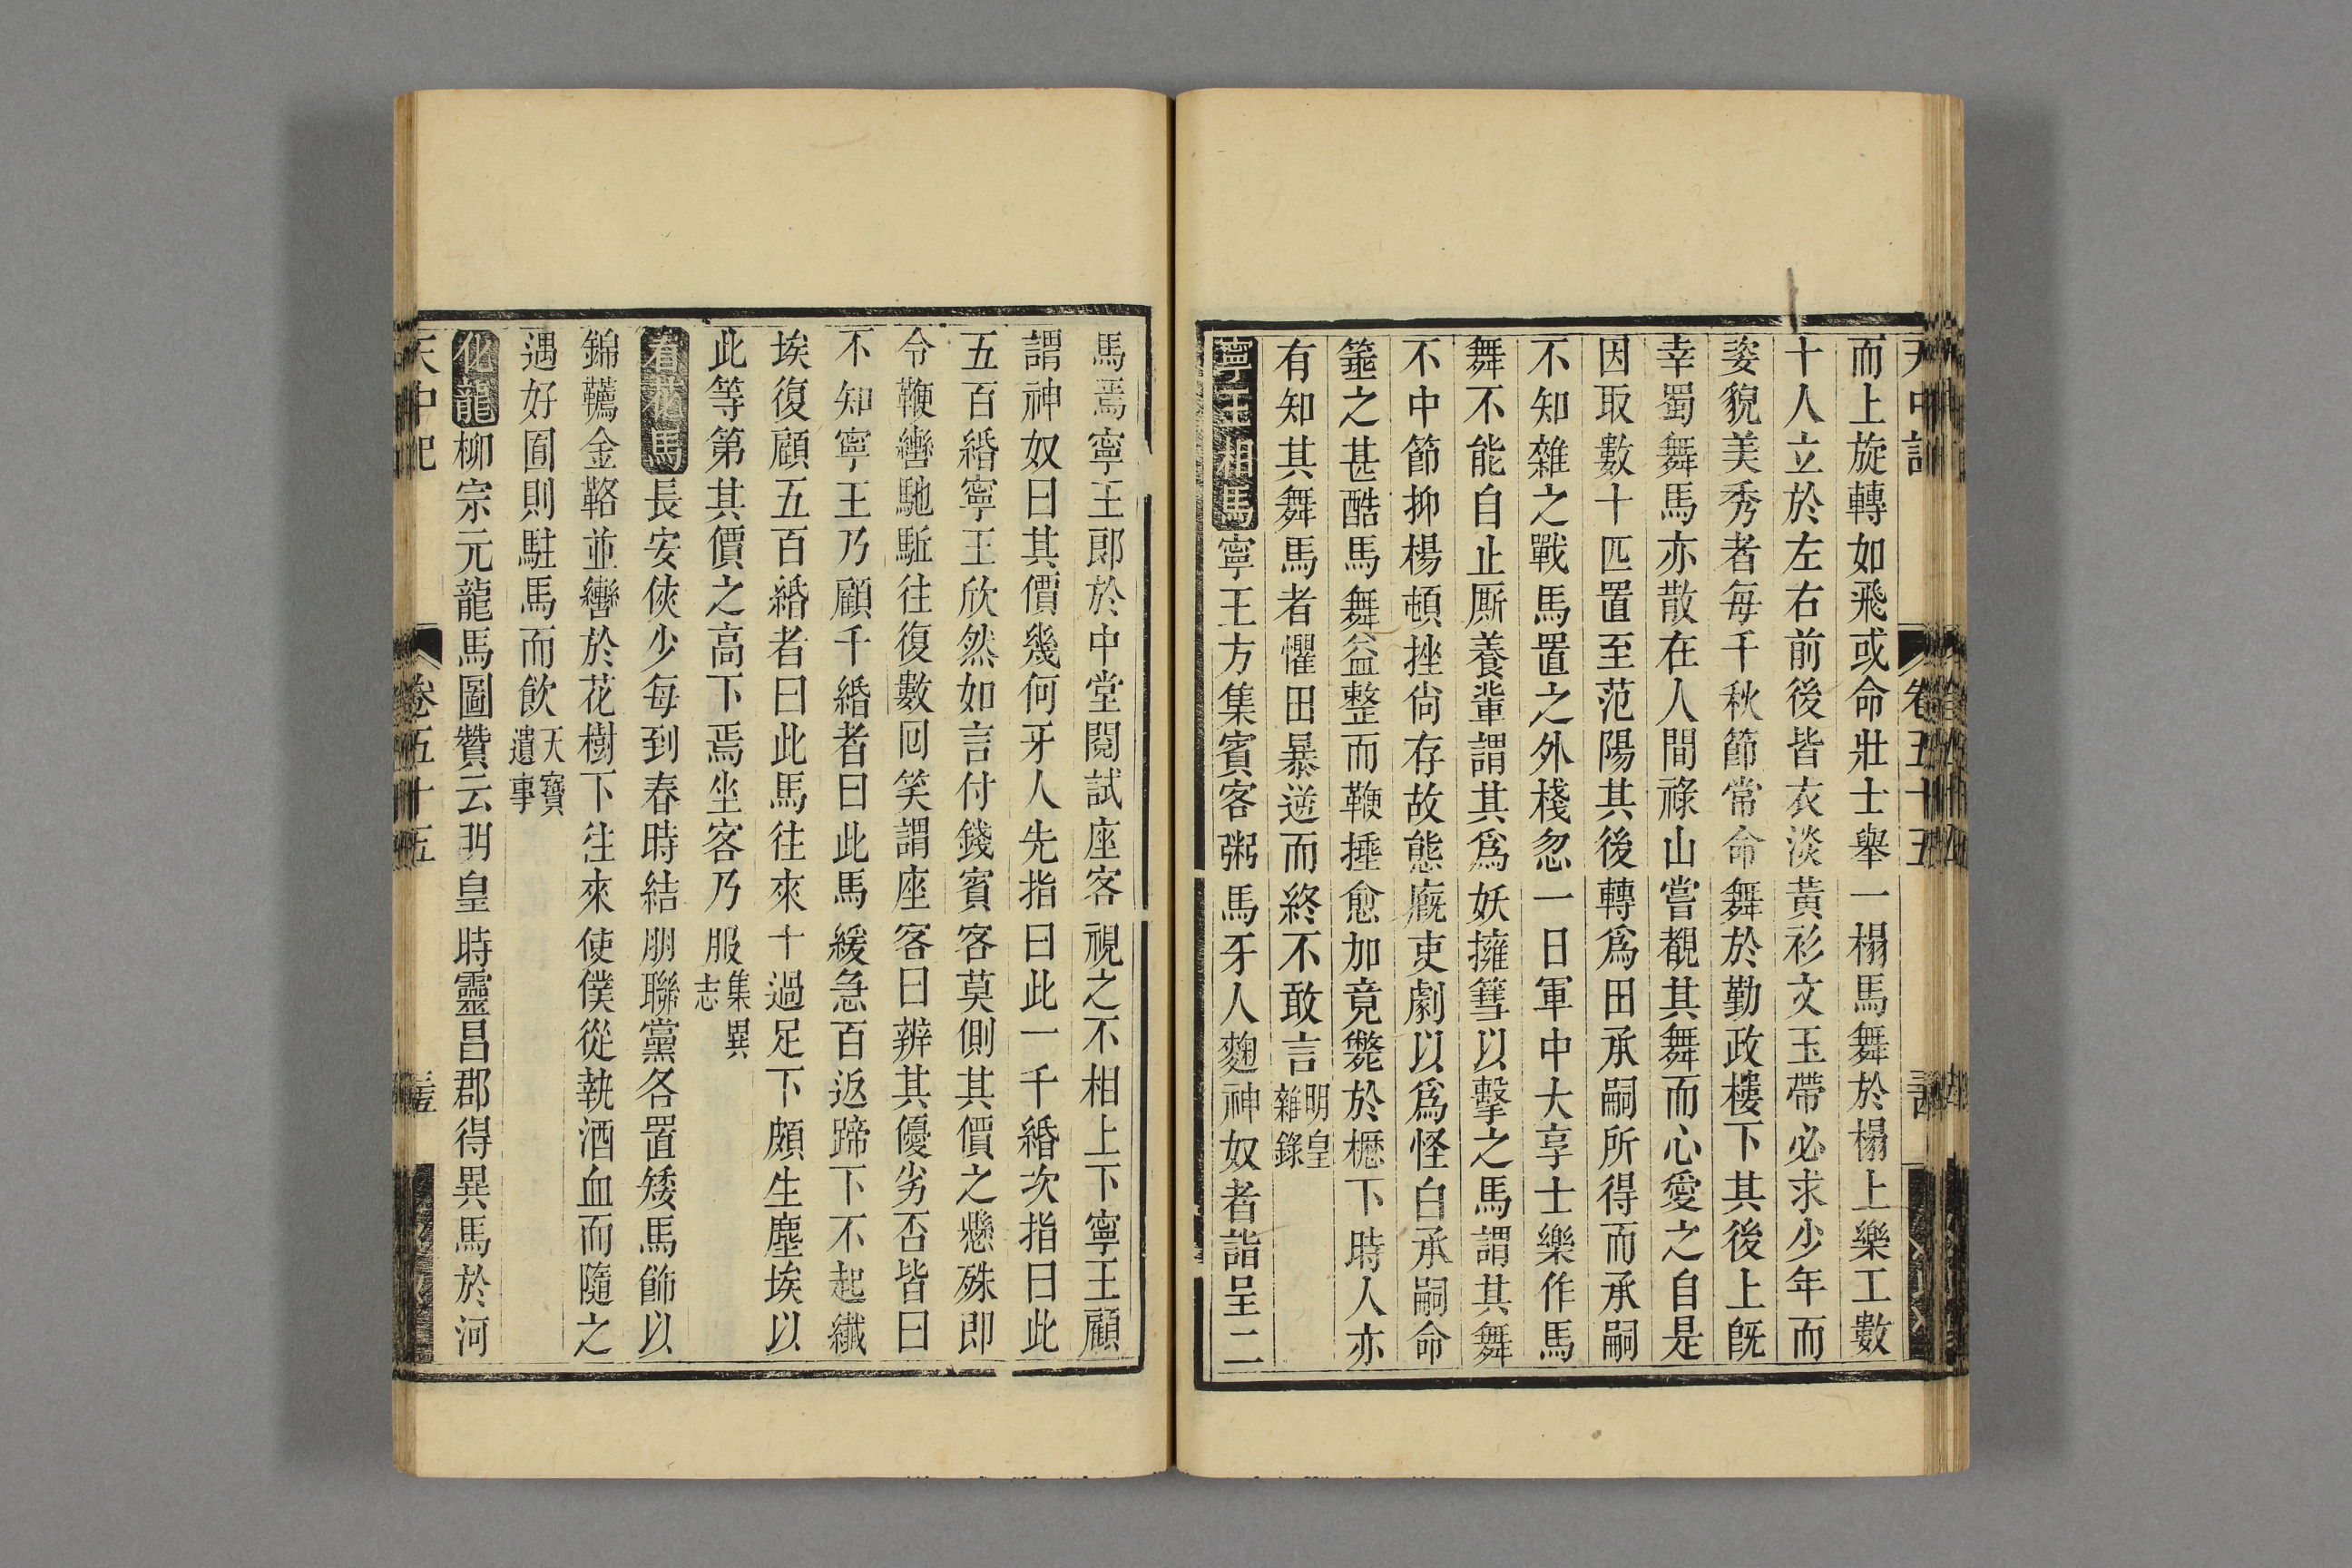 而上旋轉如飛或命壯士舉一榻馬舞於榻上樂工數
十人立於左右前後皆衣淡黃衫文玉帶必求少年而
姿貌美秀者每千秋節常命舞於勤政樓下其後上旣
幸蜀舞馬亦散在人間祿山嘗覩其舞而心愛之自是
因取數十匹置至范陽其後轉爲田承嗣所得而承嗣
不知雜之戰馬置之外棧忽一日軍中大享士樂作馬
舞不能自止厮養輩謂其爲妖擁篲以擊之馬謂其舞
不中節抑楊頓挫尙存故態廐吏劇以爲怪白承嗣命
箠之甚酷馬舞益整而鞭捶愈加竟斃於櫪下時人亦
有知其舞馬者懼田暴逆而終不敢言明皇雜錄
寧王相馬寧王方集賓客粥馬牙人麴神奴者詣呈二
馬焉寧王郎於中堂閱試座客視之不相上下寧王顧
謂神奴曰其價幾何牙人先指曰此一千緡次指曰此
五百緡寧王欣然如言付錢賓客莫側其價之懸殊即
令鞭轡馳駈往復數囘笑謂座客曰辨其優劣否皆曰
不知寧王乃顧千緡者曰此馬緩急百返蹄下不起纖
埃復顧五百緡者曰此馬往來十過足下頗生塵埃以
此等第其價之高下焉坐客乃服集異志
看花馬長安俠少每到春時結朋聯黨各置矮馬飾以
錦韉金鞈並轡於花樹下往來使僕從執酒血而隨之
遇好囿則駐馬而飲天寶遺事
化龍柳宗元龍馬圖贊云明皇時靈昌郡得異馬於河
天中記 卷五十五